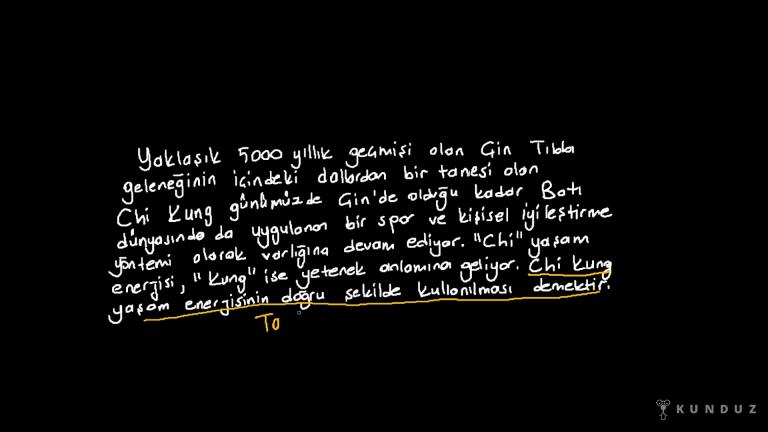 Yaklaşık 5000 yıllık geçmişi olan Çin Tıbbı
geleneğinin içindeki dallardan bir tanesi olan
Chi Kung günümüzde Çin'de olduğu kadar Batı
dünyasında da uygulanan bir spor ve kişisel iyileştirme
yöntemi olarak varlığına devam ediyor. "Chi" yaşam
enerjisi, "Kung" ise yetenek anlamına geliyor. Chi Kung
yaşam enerjisinin doğru şekilde kullanılması demektir.
Ta
KUNDUZ